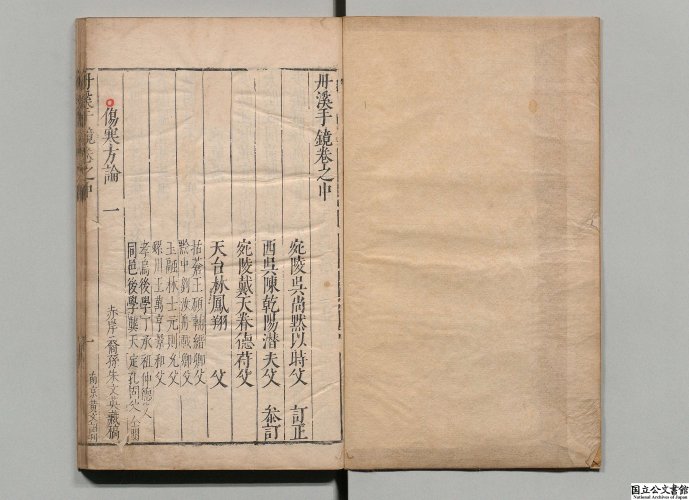 丹溪手鏡卷之中
宛陵吳尚默以時父 訂正
西吳陳乾陽潛夫父 叅訂
宛陵戴天眷德符父
天台林鳳翔 父
括蒼王碩輔紹卿父
黔中 父
玉融林士元則允父
螺川王萬亨 和父
孝烏後學丁承祖仲德父
同邑後學龔天定孔固父
赤岸裔孫朱文英藏稿
傷寒方論 一
丹溪手鏡卷之中
一
国立公文書館
National Archives of Japan